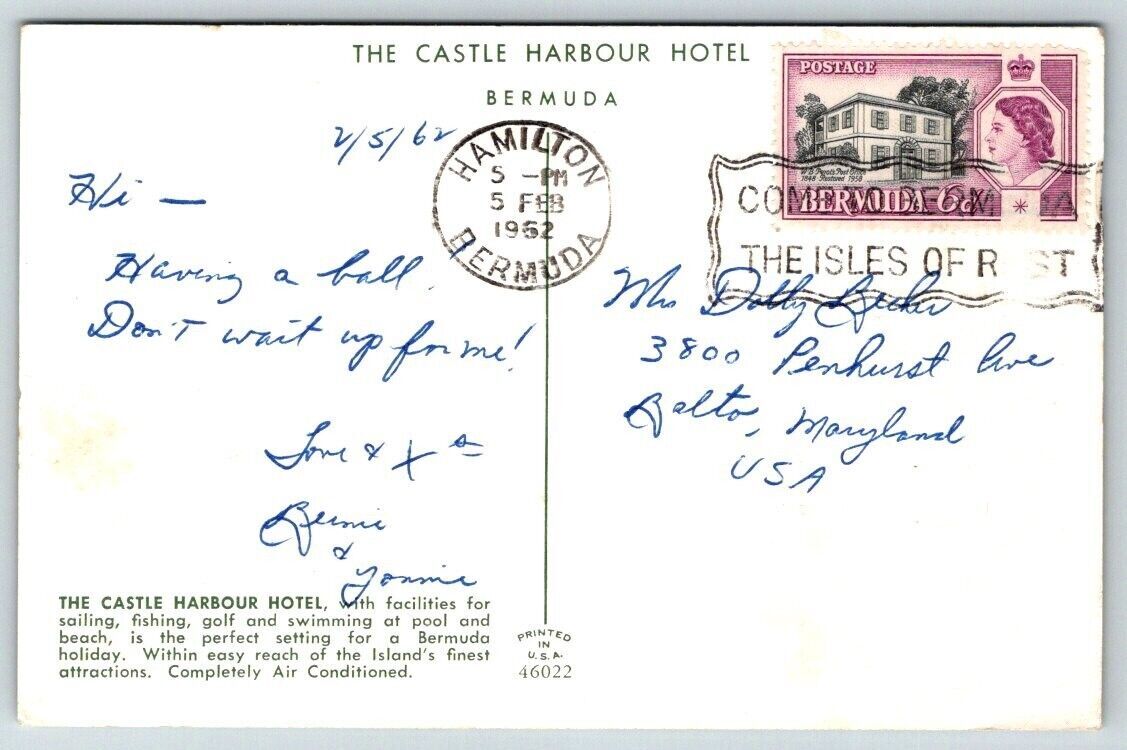 THE CASTLE HARBOUR HOTEL
BERMUDA
POSTAGE
W.B. Perot's Post Office
1848 Restored 1958
BERMUDA 6d
HAMILTON
5 - PM
5 FEB
1962
BERMUDA
COME TO BERM DA
THE ISLES OF R ST
2/5/62
Hi —
Having a ball.
Don't wait up for me!
Love & Xs
Bernie
&
Yonnie
Mrs Dolly
3800 Penhurst Ave
Balto, Maryland
USA
THE CASTLE HARBOUR HOTEL, with facilities for
sailing, fishing, golf and swimming at pool and
beach, is the perfect setting for a Bermuda
holiday. Within easy reach of the Island's finest
attractions. Completely Air Conditioned.
PRINTED
IN
U.S.A.
46022